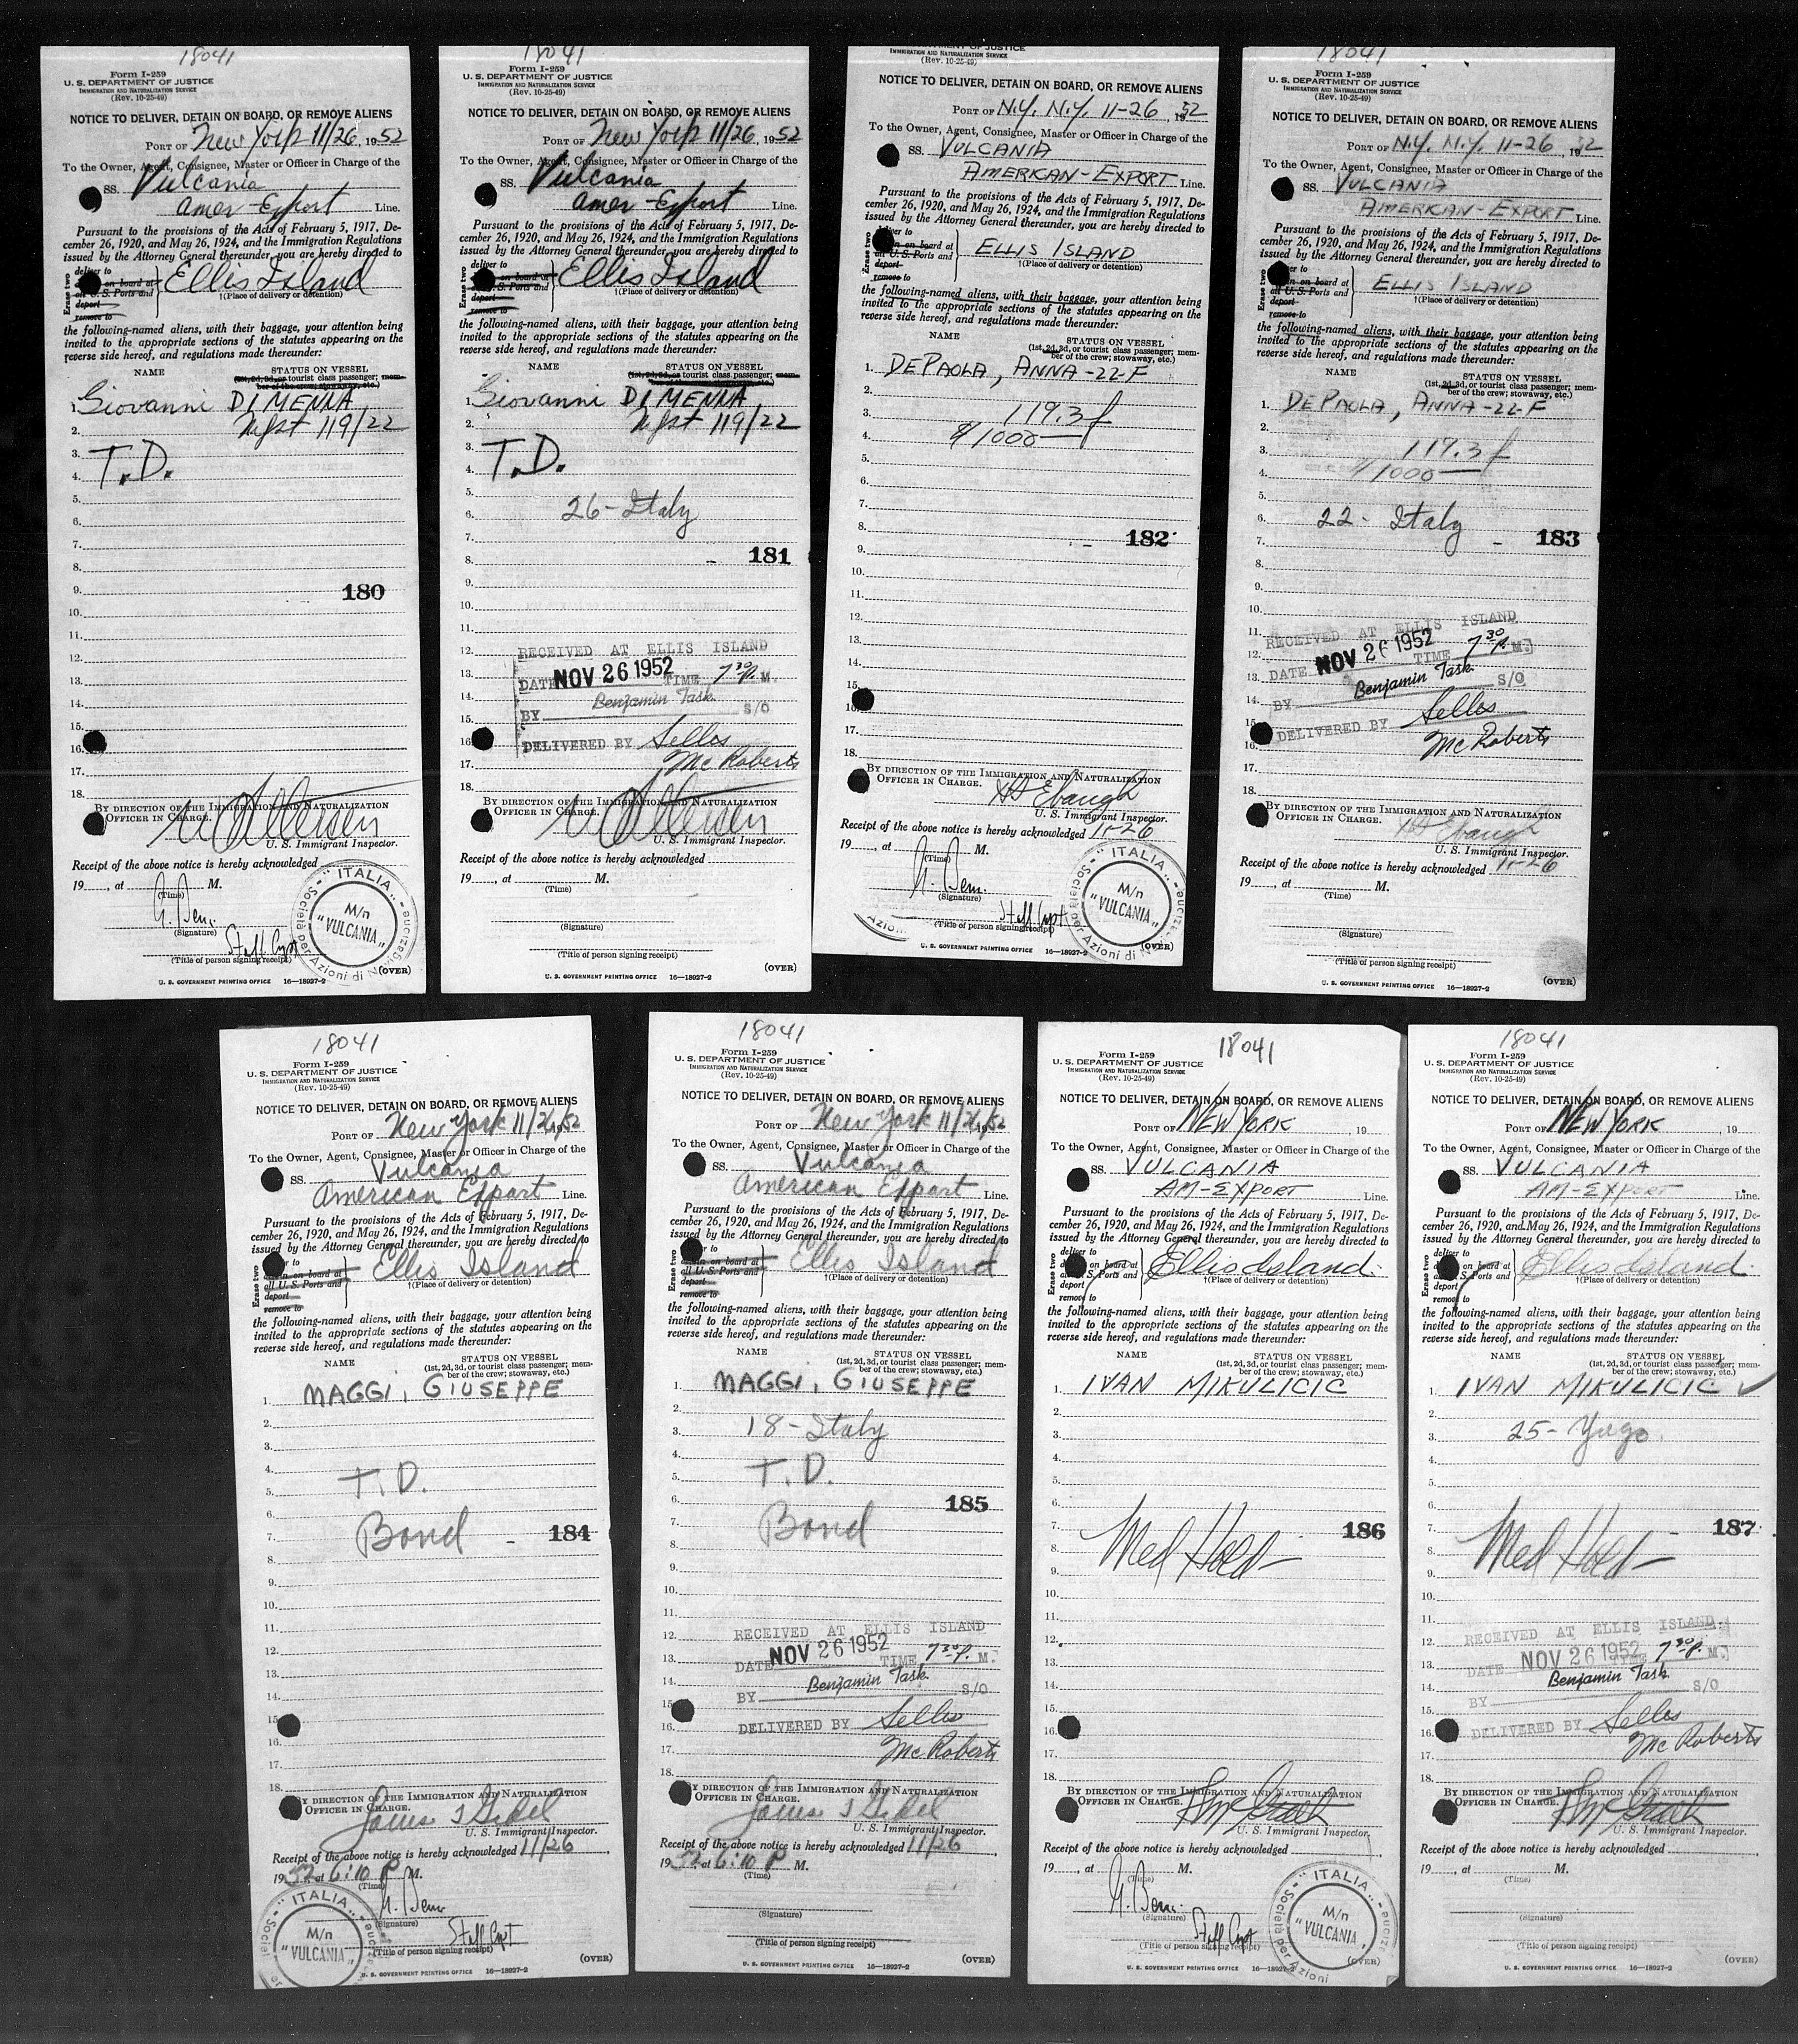 18041
Form I-259
U. S. DEPARTMENT OF JUSTICE
IMMIGRATION AND NATURALIZATION SERVICE
(Rev. 10-25-49)
NOTICE TO DELIVER, DETAIN ON BOARD, OR REMOVE ALIENS
PORT OF New York 11/26, 1952
To the Owner, Agent, Consignee, Master or Officer in Charge of the
SS. Vulcania
Amer-Export Line.
Pursuant to the provisions of the Acts of February 5, 1917, De-
cember 26, 1920, and May 26, 1924, and the Immigration Regulations
issued by the Attorney General thereunder, you are hereby directed to
Erase two
deliver to
on board at
all U. S. Ports and
deport
remove to
Ellis Island
†(Place of delivery or detention)
the following-named aliens, with their baggage, your attention being
invited to the appropriate sections of the statutes appearing on the
reverse side hereof, and regulations made thereunder:
NAME STATUS ON VESSEL
(1st, 2d, 3d, or tourist class passenger; mem-
ber of the crew; stowaway, etc.)
1. Giovanni DI MENNA
2. 119/22
3.
4. T.D.
5.
6.
7.
8.
9. 180
10.
11.
12.
13.
14.
15.
16.
17.
18.
BY DIRECTION OF THE IMMIGRATION AND NATURALIZATION
OFFICER IN CHARGE.
U. S. Immigrant Inspector.
Receipt of the above notice is hereby acknowledged
19 , at M.
(Time)
(Signature)
Staff Capt
(Title of person signing receipt)
"ITALIA" - Società per Azioni di Navigazione -
M/n
"VULCANIA"
(OVER)
U. S. GOVERNMENT PRINTING OFFICE 16—18927-2
18041
Form I-259
U. S. DEPARTMENT OF JUSTICE
IMMIGRATION AND NATURALIZATION SERVICE
(Rev. 10-25-49)
NOTICE TO DELIVER, DETAIN ON BOARD, OR REMOVE ALIENS
PORT OF New York 11/26, 1952
To the Owner, Agent, Consignee, Master or Officer in Charge of the
SS. Vulcania
Amer-Export Line.
Pursuant to the provisions of the Acts of February 5, 1917, De-
cember 26, 1920, and May 26, 1924, and the Immigration Regulations
issued by the Attorney General thereunder, you are hereby directed to
Erase two
deliver to
on board at
all U. S. Ports and
deport
remove to
Ellis Island
†(Place of delivery or detention)
the following-named aliens, with their baggage, your attention being
invited to the appropriate sections of the statutes appearing on the
reverse side hereof, and regulations made thereunder:
NAME STATUS ON VESSEL
(1st, 2d, 3d, or tourist class passenger; mem-
ber of the crew; stowaway, etc.)
1. Giovanni DI MENNA
2. 119/22
3.
4. T.D.
5.
6. 26-Italy
7.
8. 181
9.
10.
11.
12. RECEIVED AT ELLIS ISLAND
13. DATE NOV 26 1952 TIME 7 30 P. M.
14. BY Benjamin Task S/O
15.
16. DELIVERED BY Selles
17. McRoberts
18.
BY DIRECTION OF THE IMMIGRATION AND NATURALIZATION
OFFICER IN CHARGE.
U. S. Immigrant Inspector.
Receipt of the above notice is hereby acknowledged
19 , at M.
(Time)
(Signature)
(Title of person signing receipt)
(OVER)
U. S. GOVERNMENT PRINTING OFFICE 16—18927-2
DEPARTMENT OF JUSTICE
IMMIGRATION AND NATURALIZATION SERVICE
(Rev. 10-25-49)
NOTICE TO DELIVER, DETAIN ON BOARD, OR REMOVE ALIENS
PORT OF N.Y. N.Y. 11-26, 1952
To the Owner, Agent, Consignee, Master or Officer in Charge of the
SS. VULCANIA
AMERICAN-EXPORT Line.
Pursuant to the provisions of the Acts of February 5, 1917, De-
cember 26, 1920, and May 26, 1924, and the Immigration Regulations
issued by the Attorney General thereunder, you are hereby directed to
Erase two
deliver to
on board at
all U. S. Ports and
deport
remove to
ELLIS ISLAND
†(Place of delivery or detention)
the following-named aliens, with their baggage, your attention being
invited to the appropriate sections of the statutes appearing on the
reverse side hereof, and regulations made thereunder:
NAME STATUS ON VESSEL
(1st, 2d, 3d, or tourist class passenger; mem-
ber of the crew; stowaway, etc.)
1. DEPAOLA, ANNA-22-F
2.
3. 119.3 f
4. $1000
5.
6.
7.
8. 182
9.
10.
11.
12.
13.
14.
15.
16.
17.
18.
BY DIRECTION OF THE IMMIGRATION AND NATURALIZATION
OFFICER IN CHARGE. Ebaugh
U. S. Immigrant Inspector.
Receipt of the above notice is hereby acknowledged 11-26
19 , at M.
(Time)
(Signature)
Staff Capt
(Title of person signing receipt)
"ITALIA" - Società per Azioni di Navigazione -
M/n
"VULCANIA"
(OVER)
U. S. GOVERNMENT PRINTING OFFICE 16—18927-2
18041
Form I-259
U. S. DEPARTMENT OF JUSTICE
IMMIGRATION AND NATURALIZATION SERVICE
(Rev. 10-25-49)
NOTICE TO DELIVER, DETAIN ON BOARD, OR REMOVE ALIENS
PORT OF N.Y. N.Y. 11-26, 1952
To the Owner, Agent, Consignee, Master or Officer in Charge of the
SS. VULCANIA
AMERICAN-EXPORT Line.
Pursuant to the provisions of the Acts of February 5, 1917, De-
cember 26, 1920, and May 26, 1924, and the Immigration Regulations
issued by the Attorney General thereunder, you are hereby directed to
Erase two
deliver to
on board at
all U. S. Ports and
deport
remove to
ELLIS ISLAND
†(Place of delivery or detention)
the following-named aliens, with their baggage, your attention being
invited to the appropriate sections of the statutes appearing on the
reverse side hereof, and regulations made thereunder:
NAME STATUS ON VESSEL
(1st, 2d, 3d, or tourist class passenger; mem-
ber of the crew; stowaway, etc.)
1. DEPAOLA, ANNA-22-F
2.
3. 119.3 f
4. $1000
5.
6. 22- Italy
7. 183
8.
9.
10.
11. RECEIVED AT ELLIS ISLAND
12. DATE NOV 26 1952 TIME 7 30 P. M.
13. Benjamin Task S/O
14. BY
15. DELIVERED BY Selles
16. McRoberts
17.
18.
BY DIRECTION OF THE IMMIGRATION AND NATURALIZATION
OFFICER IN CHARGE. Ebaugh
U. S. Immigrant Inspector.
Receipt of the above notice is hereby acknowledged 11-26
19 , at M.
(Time)
(Signature)
(Title of person signing receipt)
(OVER)
U. S. GOVERNMENT PRINTING OFFICE 16—18927-2
18041
Form I-259
U. S. DEPARTMENT OF JUSTICE
IMMIGRATION AND NATURALIZATION SERVICE
(Rev. 10-25-49)
NOTICE TO DELIVER, DETAIN ON BOARD, OR REMOVE ALIENS
PORT OF New York 11/26, 1952
To the Owner, Agent, Consignee, Master or Officer in Charge of the
SS. Vulcania
American Export Line.
Pursuant to the provisions of the Acts of February 5, 1917, De-
cember 26, 1920, and May 26, 1924, and the Immigration Regulations
issued by the Attorney General thereunder, you are hereby directed to
Erase two
deliver to
detain on board at
all U. S. Ports and
deport
remove to
Ellis Island
†(Place of delivery or detention)
the following-named aliens, with their baggage, your attention being
invited to the appropriate sections of the statutes appearing on the
reverse side hereof, and regulations made thereunder:
NAME STATUS ON VESSEL
(1st, 2d, 3d, or tourist class passenger; mem-
ber of the crew; stowaway, etc.)
1. MAGGI, GIUSEPPE
2.
3.
4. T.D.
5.
6.
7. Bond 184
8.
9.
10.
11.
12.
13.
14.
15.
16.
17.
18.
BY DIRECTION OF THE IMMIGRATION AND NATURALIZATION
OFFICER IN CHARGE.
U. S. Immigrant Inspector.
Receipt of the above notice is hereby acknowledged 11/26
1952 at 6:10 P M.
(Time)
(Signature)
Staff Capt
(Title of person signing receipt)
"ITALIA" - Società per Azioni di Navigazione -
M/n
"VULCANIA"
(OVER)
U. S. GOVERNMENT PRINTING OFFICE 16—18927-2
18041
Form I-259
U. S. DEPARTMENT OF JUSTICE
IMMIGRATION AND NATURALIZATION SERVICE
(Rev. 10-25-49)
NOTICE TO DELIVER, DETAIN ON BOARD, OR REMOVE ALIENS
PORT OF New York 11/26, 1952
To the Owner, Agent, Consignee, Master or Officer in Charge of the
SS. Vulcania
American Export Line.
Pursuant to the provisions of the Acts of February 5, 1917, De-
cember 26, 1920, and May 26, 1924, and the Immigration Regulations
issued by the Attorney General thereunder, you are hereby directed to
Erase two
deliver to
detain on board at
all U. S. Ports and
deport
remove to
Ellis Island
†(Place of delivery or detention)
the following-named aliens, with their baggage, your attention being
invited to the appropriate sections of the statutes appearing on the
reverse side hereof, and regulations made thereunder:
NAME STATUS ON VESSEL
(1st, 2d, 3d, or tourist class passenger; mem-
ber of the crew; stowaway, etc.)
1. MAGGI, GIUSEPPE
2.
3. 18-Italy
4.
5. T.D.
6. 185
7. Bond
8.
9.
10.
11.
12. RECEIVED AT ELLIS ISLAND
13. DATE NOV 26 1952 TIME 7 30 P. M.
14. Benjamin Task
15. BY S/O
16. DELIVERED BY Selles
17. McRoberts
18.
BY DIRECTION OF THE IMMIGRATION AND NATURALIZATION
OFFICER IN CHARGE.
U. S. Immigrant Inspector.
Receipt of the above notice is hereby acknowledged 11/26
1952 at 6:10 P M.
(Time)
(Signature)
(Title of person signing receipt)
(OVER)
U. S. GOVERNMENT PRINTING OFFICE 16—18927-2
18041
Form I-259
U. S. DEPARTMENT OF JUSTICE
IMMIGRATION AND NATURALIZATION SERVICE
(Rev. 10-25-49)
NOTICE TO DELIVER, DETAIN ON BOARD, OR REMOVE ALIENS
PORT OF NEW YORK , 19
To the Owner, Agent, Consignee, Master or Officer in Charge of the
SS. VULCANIA
AM-EXPORT Line.
Pursuant to the provisions of the Acts of February 5, 1917, De-
cember 26, 1920, and May 26, 1924, and the Immigration Regulations
issued by the Attorney General thereunder, you are hereby directed to
Erase two
deliver to
on board at
all U. S. Ports and
deport
remove to
Ellis Island.
†(Place of delivery or detention)
the following-named aliens, with their baggage, your attention being
invited to the appropriate sections of the statutes appearing on the
reverse side hereof, and regulations made thereunder:
NAME STATUS ON VESSEL
(1st, 2d, 3d, or tourist class passenger; mem-
ber of the crew; stowaway, etc.)
1. IVAN MIKULICIC
2.
3.
4.
5.
6.
7. 186
8. Med Hold
9.
10.
11.
12.
13.
14.
15.
16.
17.
18.
BY DIRECTION OF THE IMMIGRATION AND NATURALIZATION
OFFICER IN CHARGE.
U. S. Immigrant Inspector.
Receipt of the above notice is hereby acknowledged
19 , at M.
(Time)
(Signature)
Staff Capt
(Title of person signing receipt)
"ITALIA" - Società per Azioni di Navigazione -
M/n
"VULCANIA"
(OVER)
U. S. GOVERNMENT PRINTING OFFICE 16—18927-2
18041
Form I-259
U. S. DEPARTMENT OF JUSTICE
IMMIGRATION AND NATURALIZATION SERVICE
(Rev. 10-25-49)
NOTICE TO DELIVER, DETAIN ON BOARD, OR REMOVE ALIENS
PORT OF NEW YORK , 19
To the Owner, Agent, Consignee, Master or Officer in Charge of the
SS. VULCANIA
AM-EXPORT Line.
Pursuant to the provisions of the Acts of February 5, 1917, De-
cember 26, 1920, and May 26, 1924, and the Immigration Regulations
issued by the Attorney General thereunder, you are hereby directed to
Erase two
deliver to
on board at
all U. S. Ports and
deport
remove to
Ellis Island.
†(Place of delivery or detention)
the following-named aliens, with their baggage, your attention being
invited to the appropriate sections of the statutes appearing on the
reverse side hereof, and regulations made thereunder:
NAME STATUS ON VESSEL
(1st, 2d, 3d, or tourist class passenger; mem-
ber of the crew; stowaway, etc.)
1. IVAN MIKULICIC ✓
2.
3. 25- Yugo.
4.
5.
6.
7. 187
8. Med Hold
9.
10.
11. RECEIVED AT ELLIS ISLAND
12.
13. DATE NOV 26 1952 TIME 7 30 P. M.
14. Benjamin Task S/O
15. BY
16. DELIVERED BY Selles
17. McRoberts
18.
BY DIRECTION OF THE IMMIGRATION AND NATURALIZATION
OFFICER IN CHARGE.
U. S. Immigrant Inspector.
Receipt of the above notice is hereby acknowledged
19 , at M.
(Time)
(Signature)
(Title of person signing receipt)
(OVER)
U. S. GOVERNMENT PRINTING OFFICE 16—18927-2